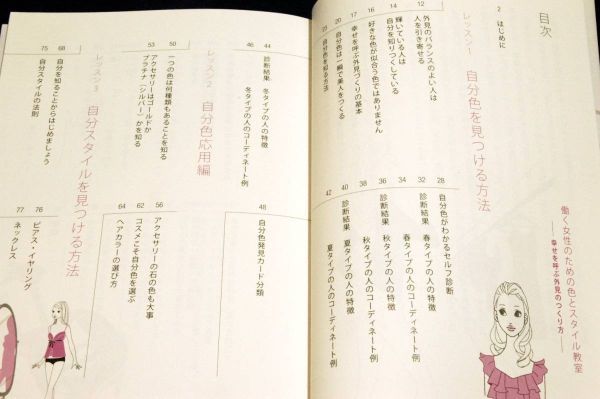 働く女性のための色とスタイル教室
― 幸せを呼ぶ外見のつくり方
目次
2 はじめに
レッスン1 自分色を見つける方法
12 外見のバランスのよい人は
人を引き寄せる
14 輝いている人は
自分を知りつくしている
16 好きな色が似合う色ではありません
17 幸せを呼ぶ外見づくりの基本
20 自分色は一瞬で美人をつくる
23 自分色を知る方法
28 自分色がわかるセルフ診断
32 診断結果 春タイプの人の特徴
34 診断結果 春タイプの人のコーディネート例
36 診断結果 秋タイプの人の特徴
38 秋タイプの人のコーディネート例
40 診断結果 夏タイプの人の特徴
42 夏タイプの人のコーディネート例
44 診断結果 冬タイプの人の特徴
46 冬タイプの人のコーディネート例
48 自分色発見カード分類
レッスン2 自分色応用編
50 一つの色は何種類もあることを知る
53 アクセサリーはゴールドか
プラチナ(シルバー)かを知る
56 アクセサリーの石の色も大事
62 コスメこそ自分色を選ぶ
64 ヘアカラーの選び方
レッスン3 自分スタイルを見つける方法
68 自分を知ることからはじめましょう
75 自分スタイルの法則
76 ピアス・イヤリング
77 ネックレス